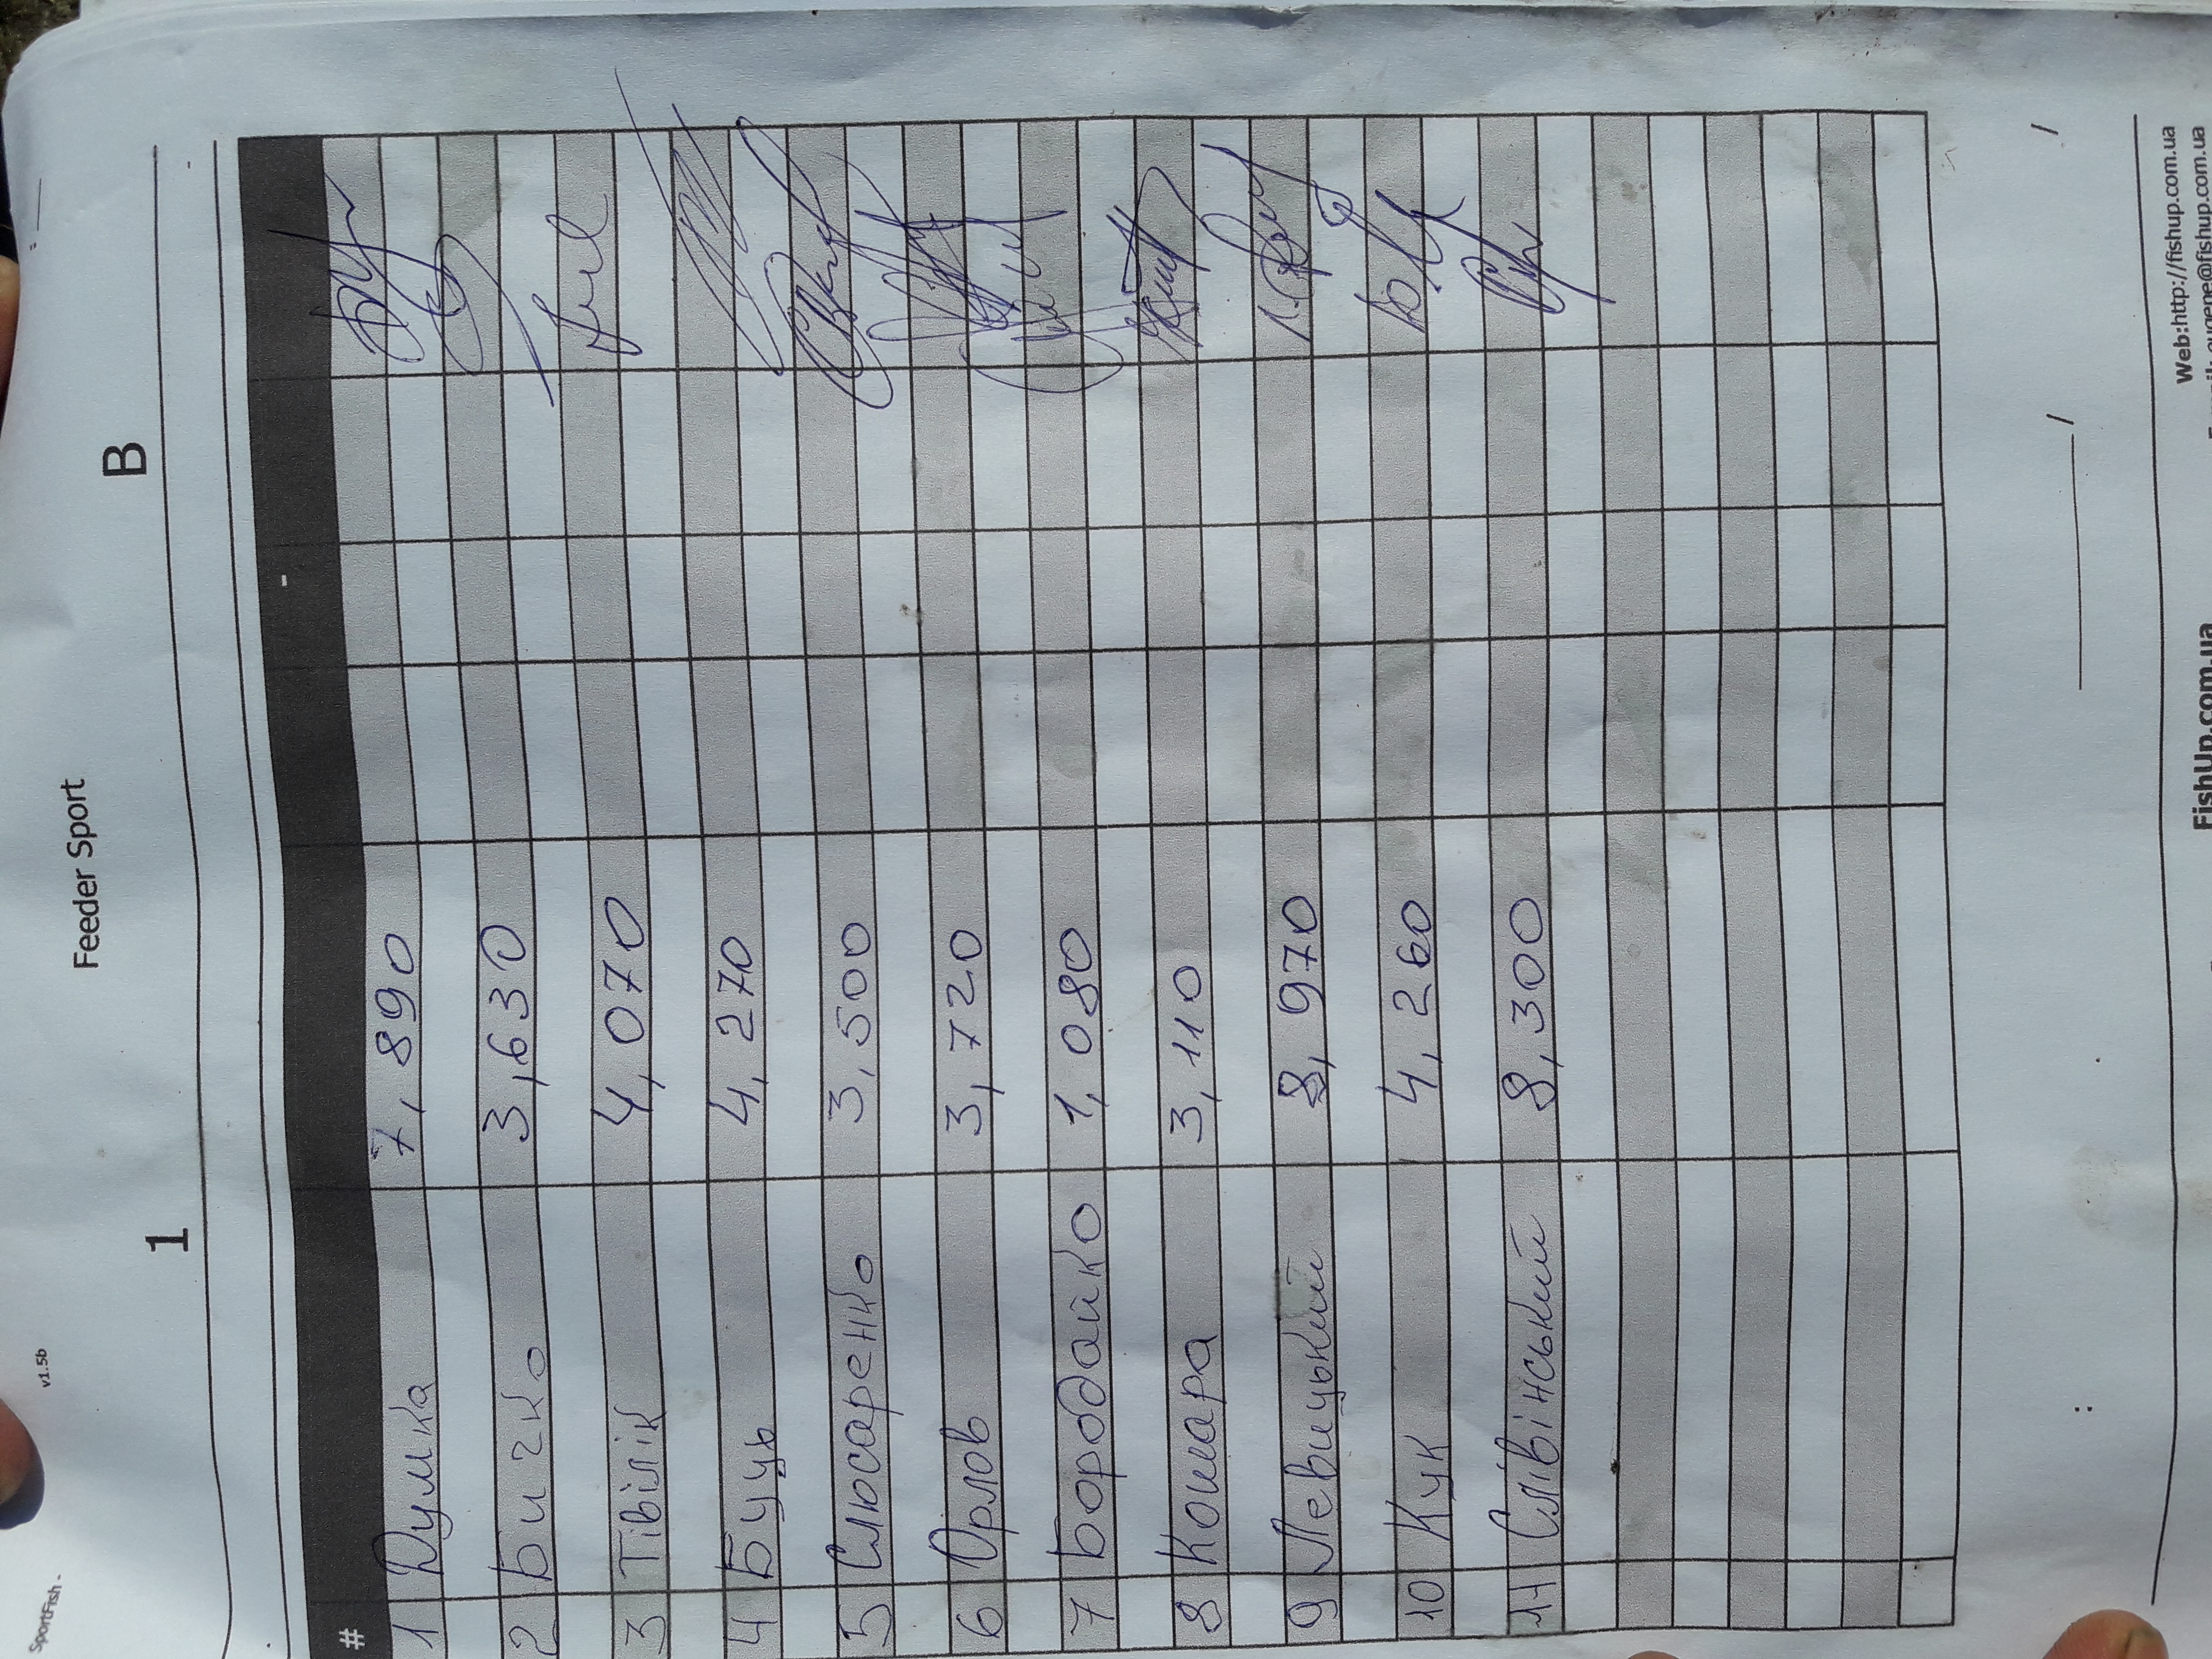 SportFish -
v1.5b
Feeder Sport
1 B
#
1 Думка 7,890
2 Бичко 3,630
3 Тівілік 4,070
4 Буць 4,270
5 Слюсаренко 3,500
6 Орлов 3,720
7 Бордайко 1,080
8 Кошара 3,110
9 Левицький 8,970
10 Кук 4,260
11 Слівінський 8,300
Web:http://fishup.com.ua
FishUp.com.ua
eugene@fishup.com.ua